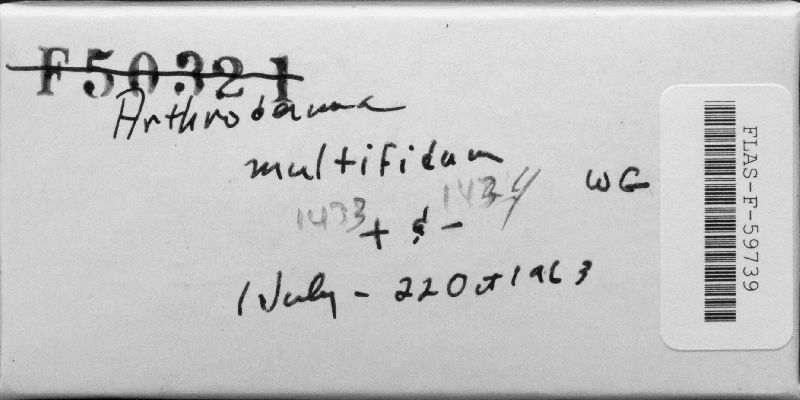 F50321
Arthroderma
multifidum
WG
1433 1434
+ & -
1 July - 22 Oct 1963
FLAS-F-59739